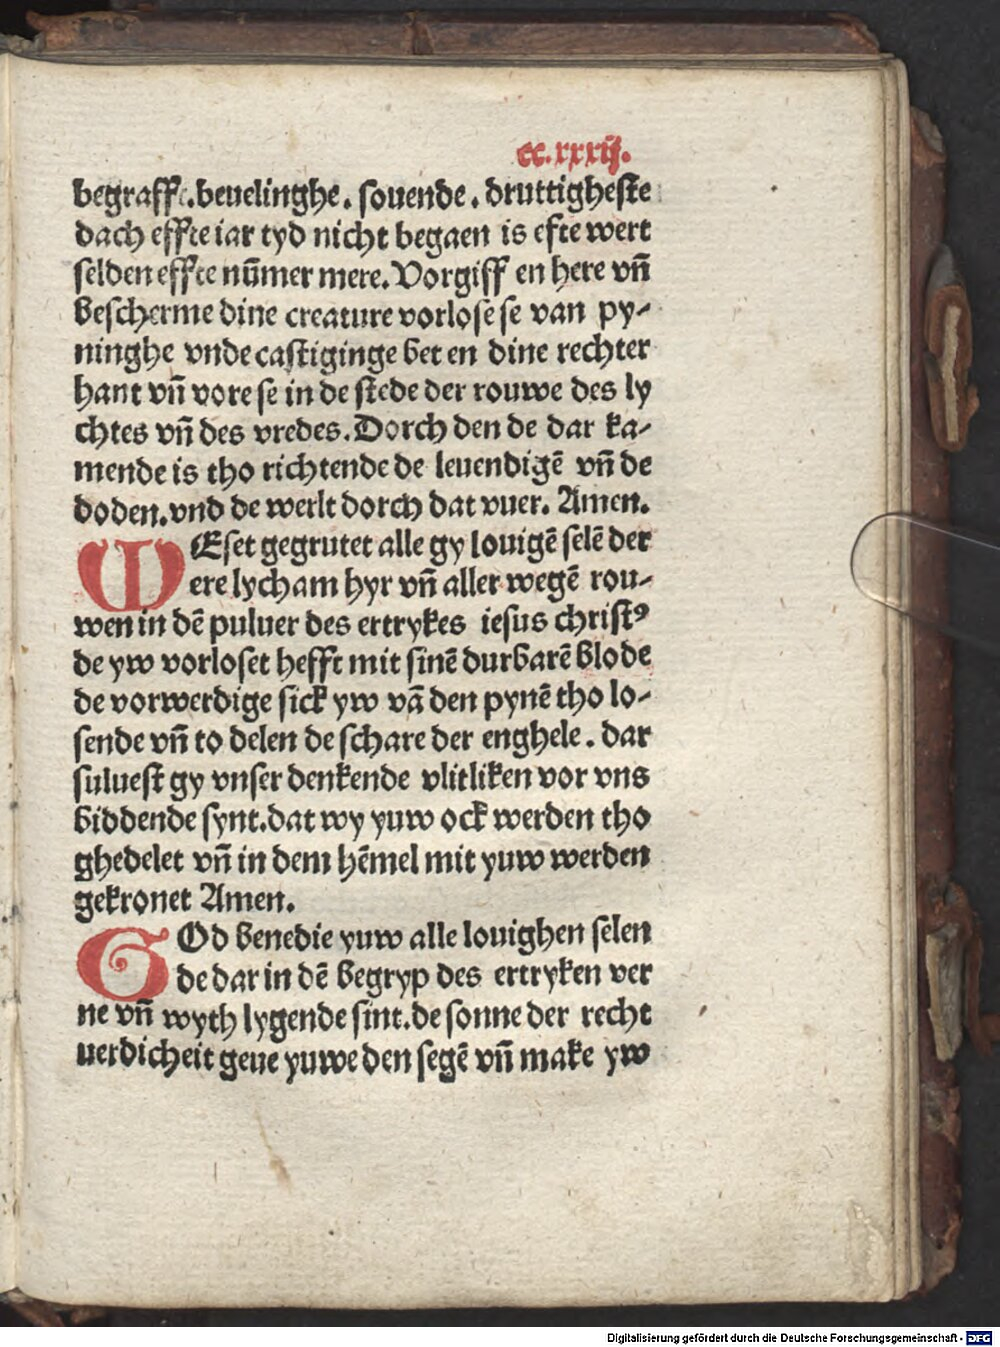 cc.xxxij.
begraff.beuelinghe. souende. druttigheste
dach effte iar tyd nicht begaen is efte wert
selden effte nūmer mere. Vorgiff en here vn̄
bescherme dine creature vorlose se van py-
ninghe vnde castiginge bet en dine rechter
hant vn̄ vore se in de stede der rouwe des ly
chtes vn̄ des vredes. Dorch den de dar ka-
mende is tho richtende de leuendigē vn̄ de
doden.vnd de werlt dorch dat vuer. Amen.
WEset gegrutet alle gy louigē selē der
ere lycham hyr vn̄ aller wegē rou-
wen in dē puluer des ertrykes iesus christꝰ
de yw vorloset hefft mit sinē durbarē blode
de vorwerdige sick yw vā den pynē tho lo-
sende vn̄ to delen de schare der enghele. dar
suluest gy vnser denkende vlitliken vor vns
biddende synt.dat wy yuw ock werden tho
ghedelet vn̄ in dem hēmel mit yuw werden
gekronet Amen.
GOd benedie yuw alle louighen selen
de dar in dē begryp des ertryken ver
ne vn̄ wyth lygende sint.de sonne der recht
uerdicheit geue yuwe den segē vn̄ make yw
Digitalisierung gefördert durch die Deutsche Forschungsgemeinschaft - DFG